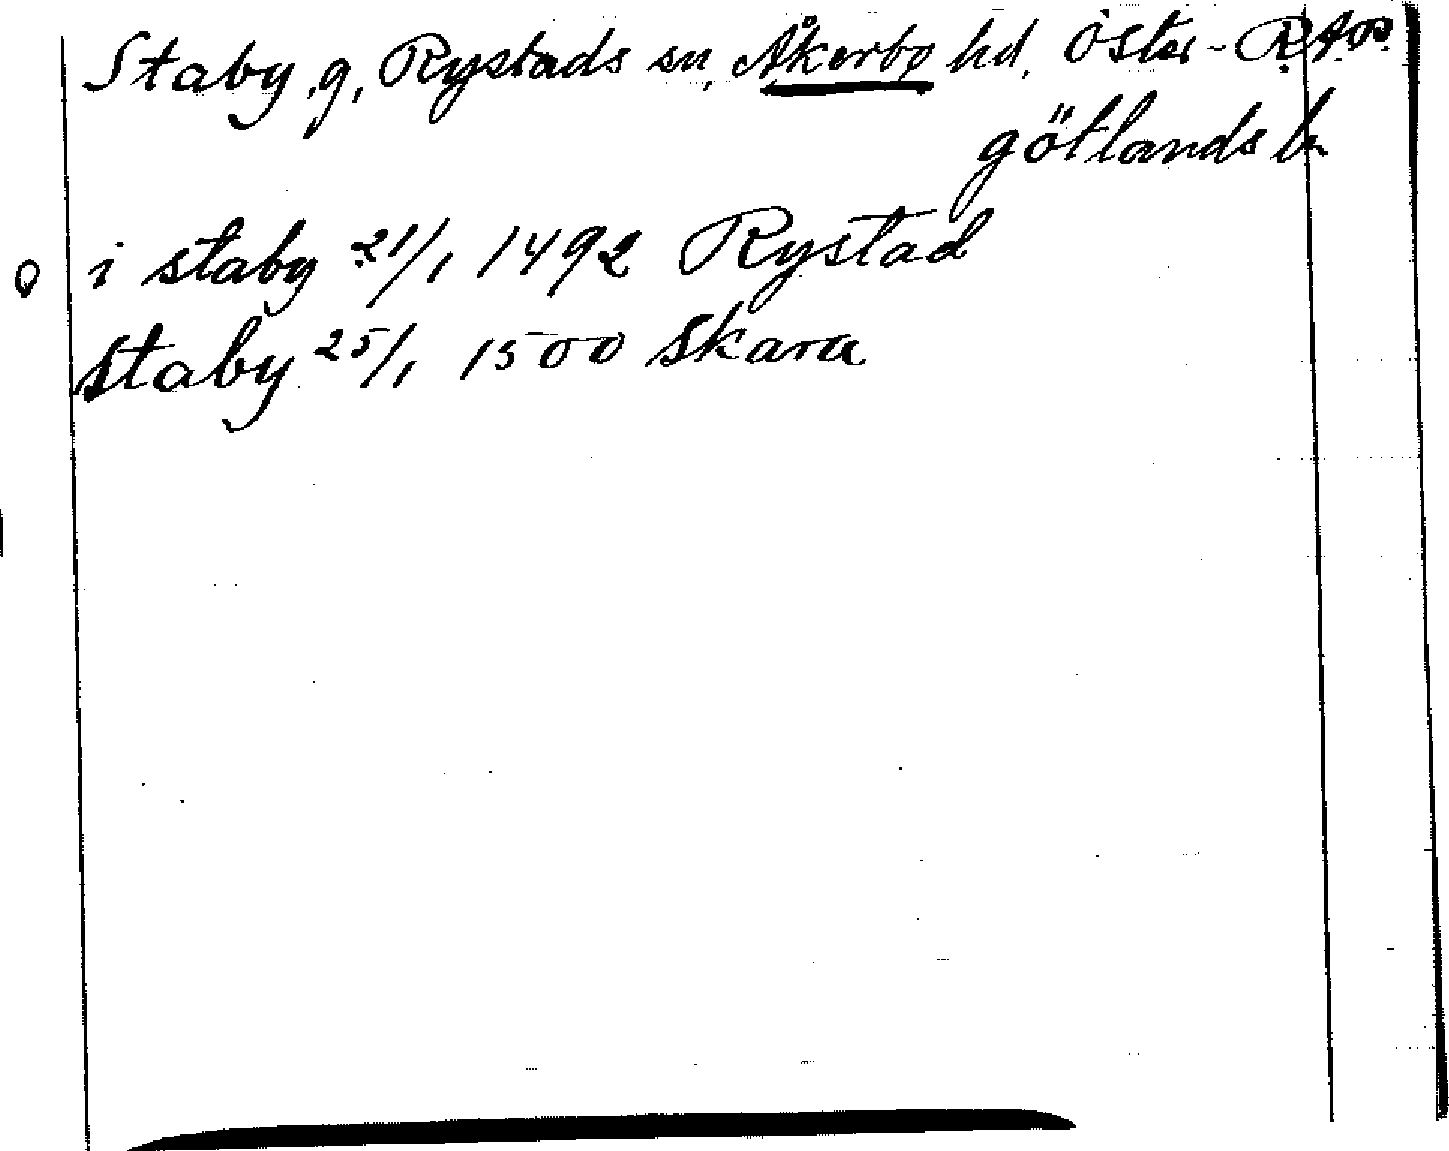 Staby, g, Rystads sn, Åkerbo hd, Öster- R.A. OR
götlands ln
i staby 21/1 1492 Rystad
staby 25/1 1500 Skara